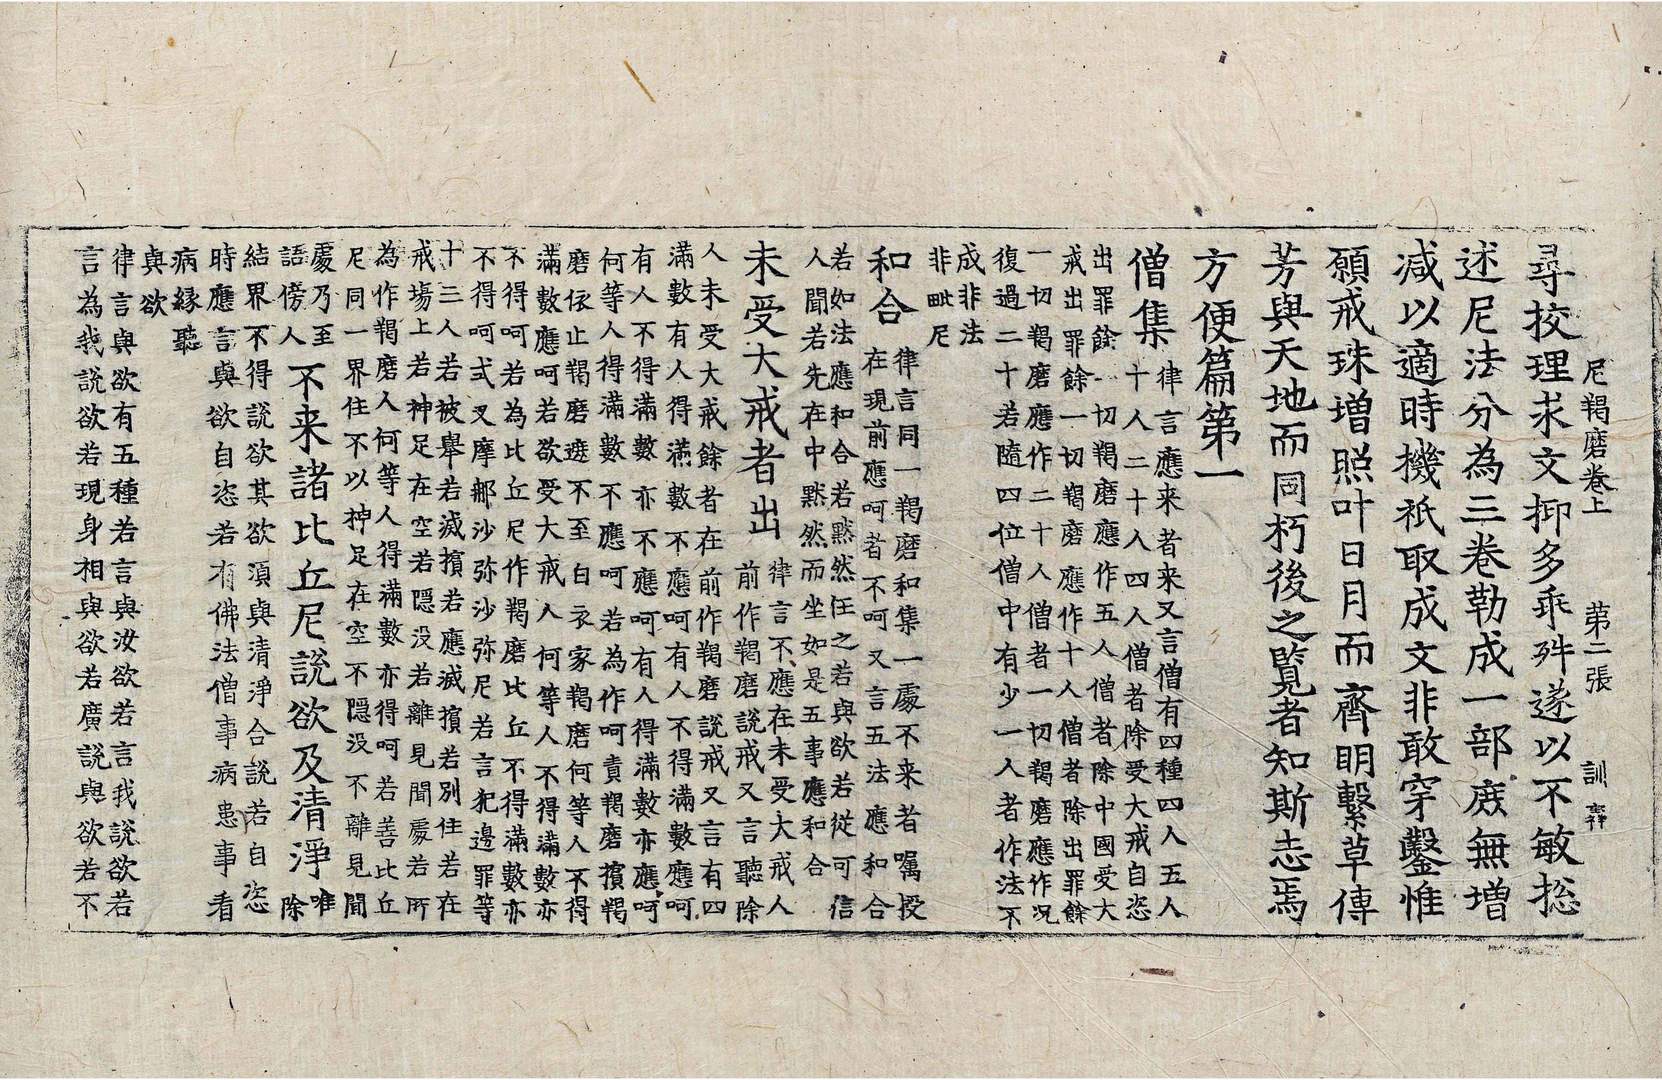 尼羯磨卷上　第二張　訓
尋挍理求文抑多乖舛遂以不敏捴
述尼法分為三卷勒成一部庻無增
減以適時機祇取成文非敢穿鑿惟
願戒珠增照叶日月而齊明繫草傳
芳與天地而同朽後之覧者知斯志焉
方便篇第一
僧集
律言應来者来又言僧有四種四人五人
十人二十人四人僧者除受大戒自恣
出罪餘一切羯磨應作五人僧者除中國受大
戒出罪餘一切羯磨應作十人僧者除出罪餘
一切羯磨應作二十人僧者一切羯磨應作况
復過二十若隨四位僧中有少一人者作法不
成非法
非毗尼
和合
律言同一羯磨和集一處不来者囑授
在現前應呵者不呵又言五法應和合
若如法應和合若黙然任之若與欲若從可信
人聞若先在中黙然而坐如是五事應和合
未受大戒者出
律言不應在未受大戒人
前作羯磨說戒又言聽除
人未受大戒餘者在前作羯磨說戒又言有四
滿數有人得滿數不應呵有人不得滿數應呵
有人不得滿數亦不應呵有人得滿數亦應呵
何等人得滿數不應呵若為作呵責羯磨擯羯
磨依止羯磨遮不至白衣家羯磨何等人不得
滿數應呵若欲受大戒人何等人不得滿數亦
不得呵若為比丘尼作羯磨比丘不得滿數亦
不得呵式叉摩那沙弥沙弥尼若言犯邊罪等
十三人若被舉若滅擯若應滅擯若別住若在
戒塲上若神足在空若隠没若離見聞處若所
為作羯磨人何等人得滿數亦得呵若善比丘
尼同一界住不以神足在空不隠没不離見聞
處乃至
語傍人
不来諸比丘尼說欲及清淨
唯
除
結界不得說欲其欲須與清淨合說若自恣
時應言與欲自恣若有佛法僧事病患事看
病緣聽
與欲
律言與欲有五種若言與汝欲若言我說欲若
言為我說欲若現身相與欲若廣說與欲若不